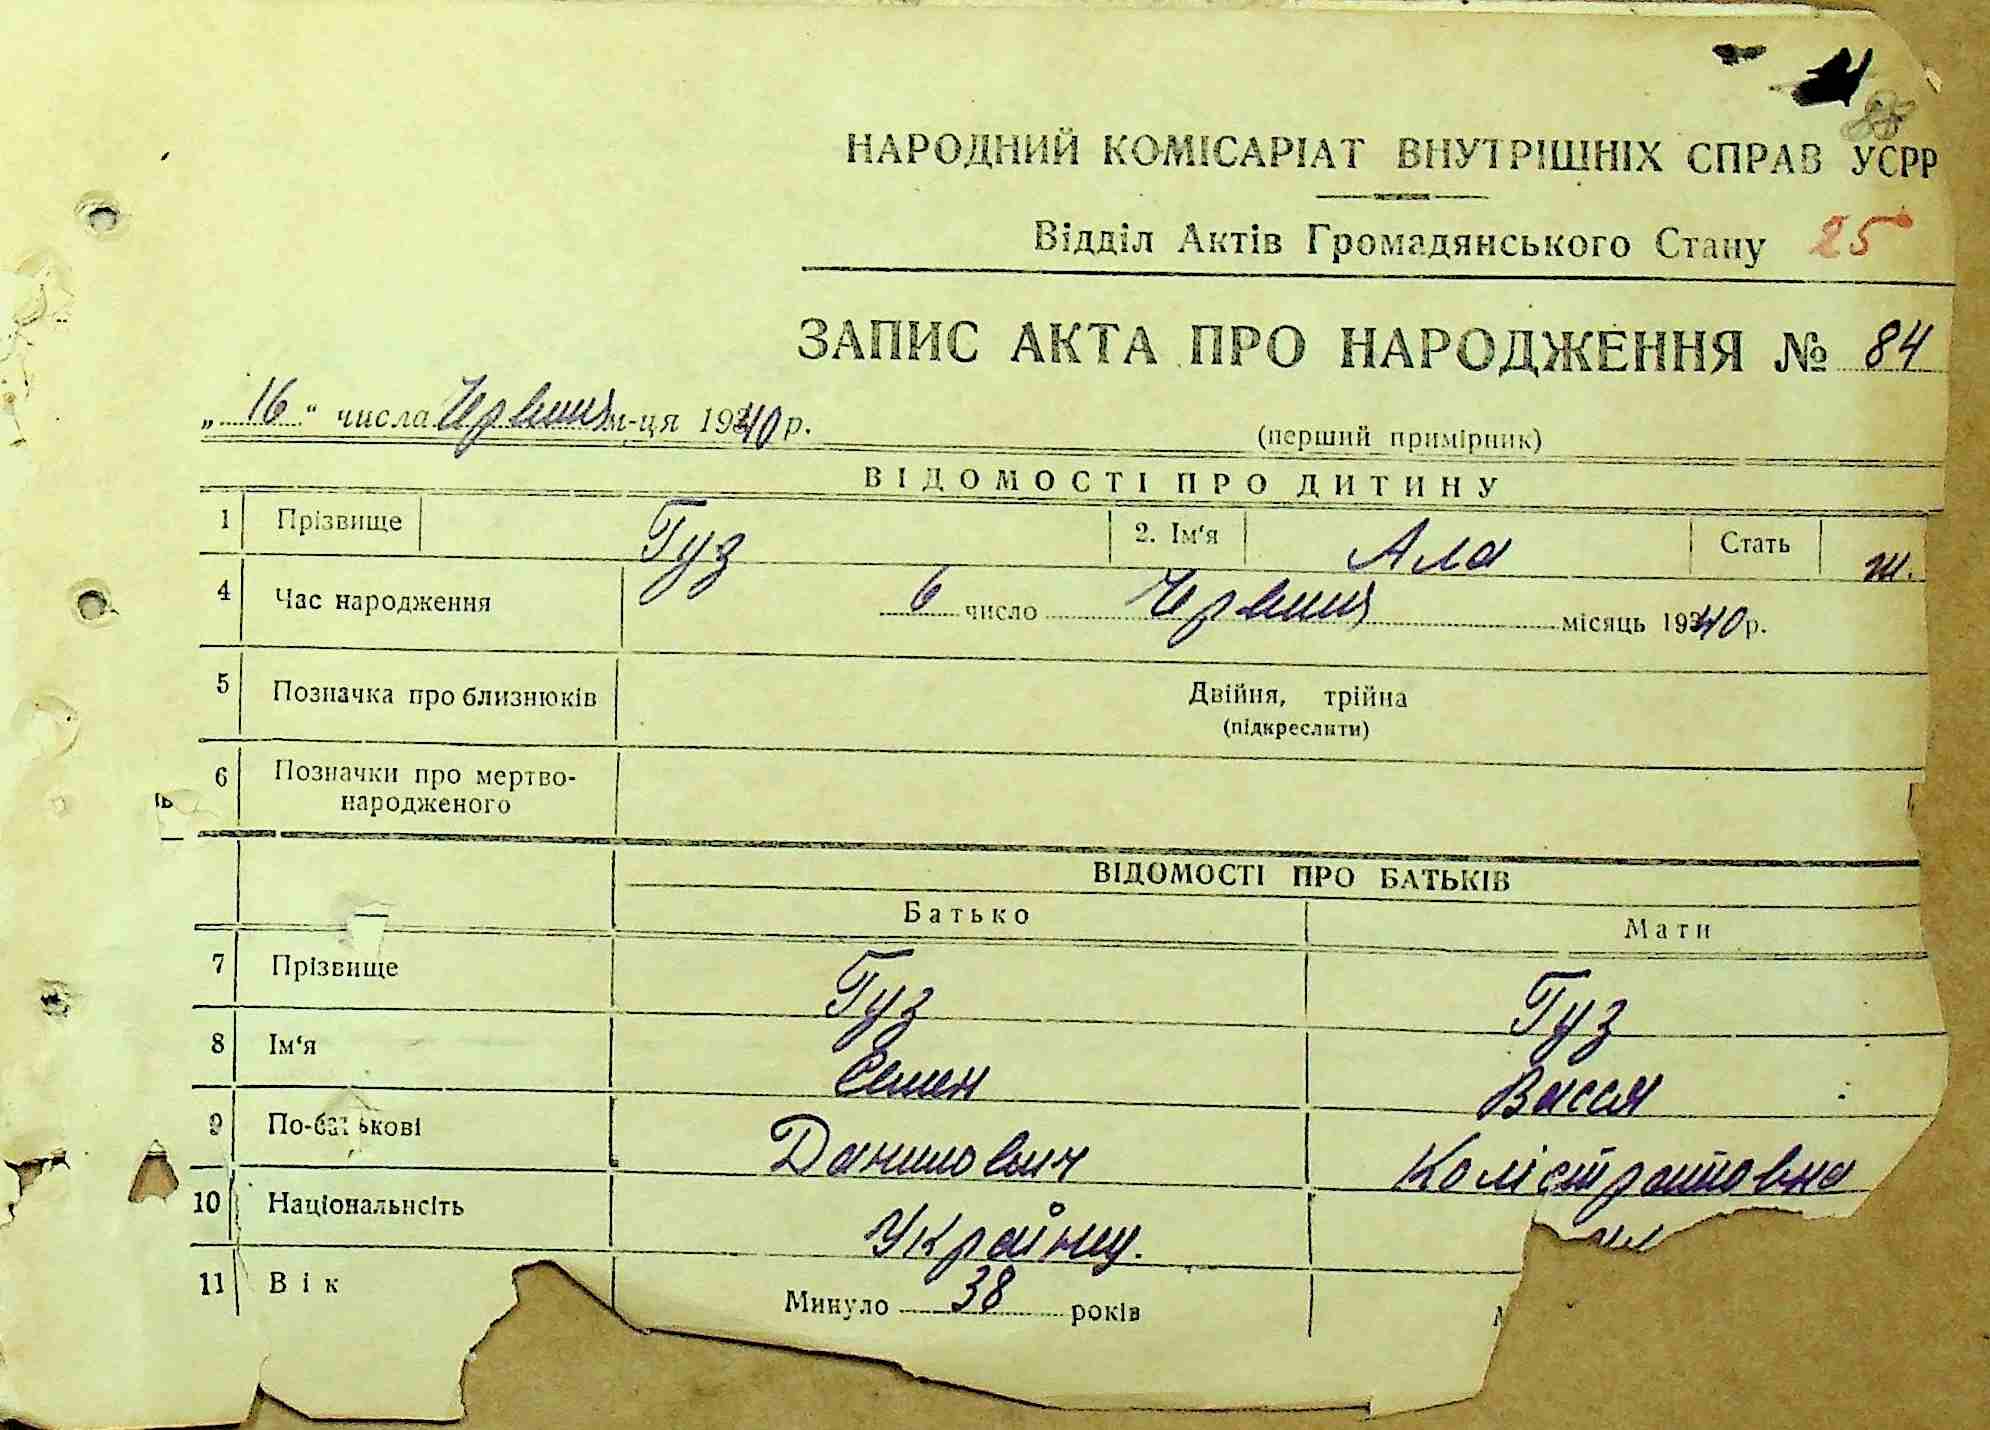 88
НАРОДНИЙ КОМІСАРІАТ ВНУТРІШНІХ СПРАВ УСРР
Відділ Актів Громадянського Стану 25
ЗАПИС АКТА ПРО НАРОДЖЕННЯ № 84
„16“ числа Червня м-ця 1940 р.
(перший примірник)
ВІДОМОСТІ ПРО ДИТИНУ
1 Прізвище Гуз 2. Ім'я Ала Стать ж.
4 Час народження 6 число Червня місяць 1940 р.
5 Позначка про близнюків Двійня, трійна
(підкреслити)
6 Позначки про мертво-
народженого
ВІДОМОСТІ ПРО БАТЬКІВ
Батько Мати
7 Прізвище Гуз Гуз
8 Ім'я Семен Васся
9 По-батькові Данилович Колістратовна
10 Національнсіть Українц.
11 Вік Минуло 38 років